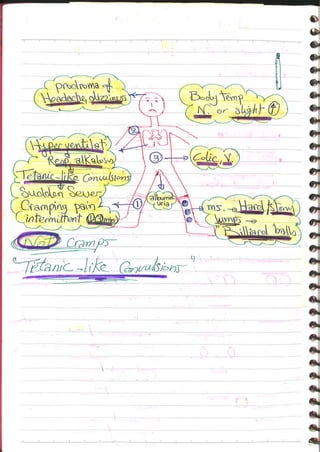 prodroma of
Headache, dizziness
Body Temp
N. or slight ↑
2
Hyperventilat.
Resp. alkalosis
Tetanic-like Convulsions
3
Colic, V.
Sudden sever
Cramping pain
intermittent
1
albumin
uria
ms. → Hard & Tens
lumps →
"Billiard balls"
Not Cramps
"Tetanic-like Convulsions"